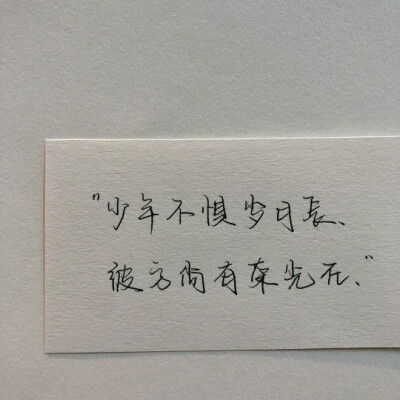 "少年不惧岁月长、
彼方尚有荣光在、"